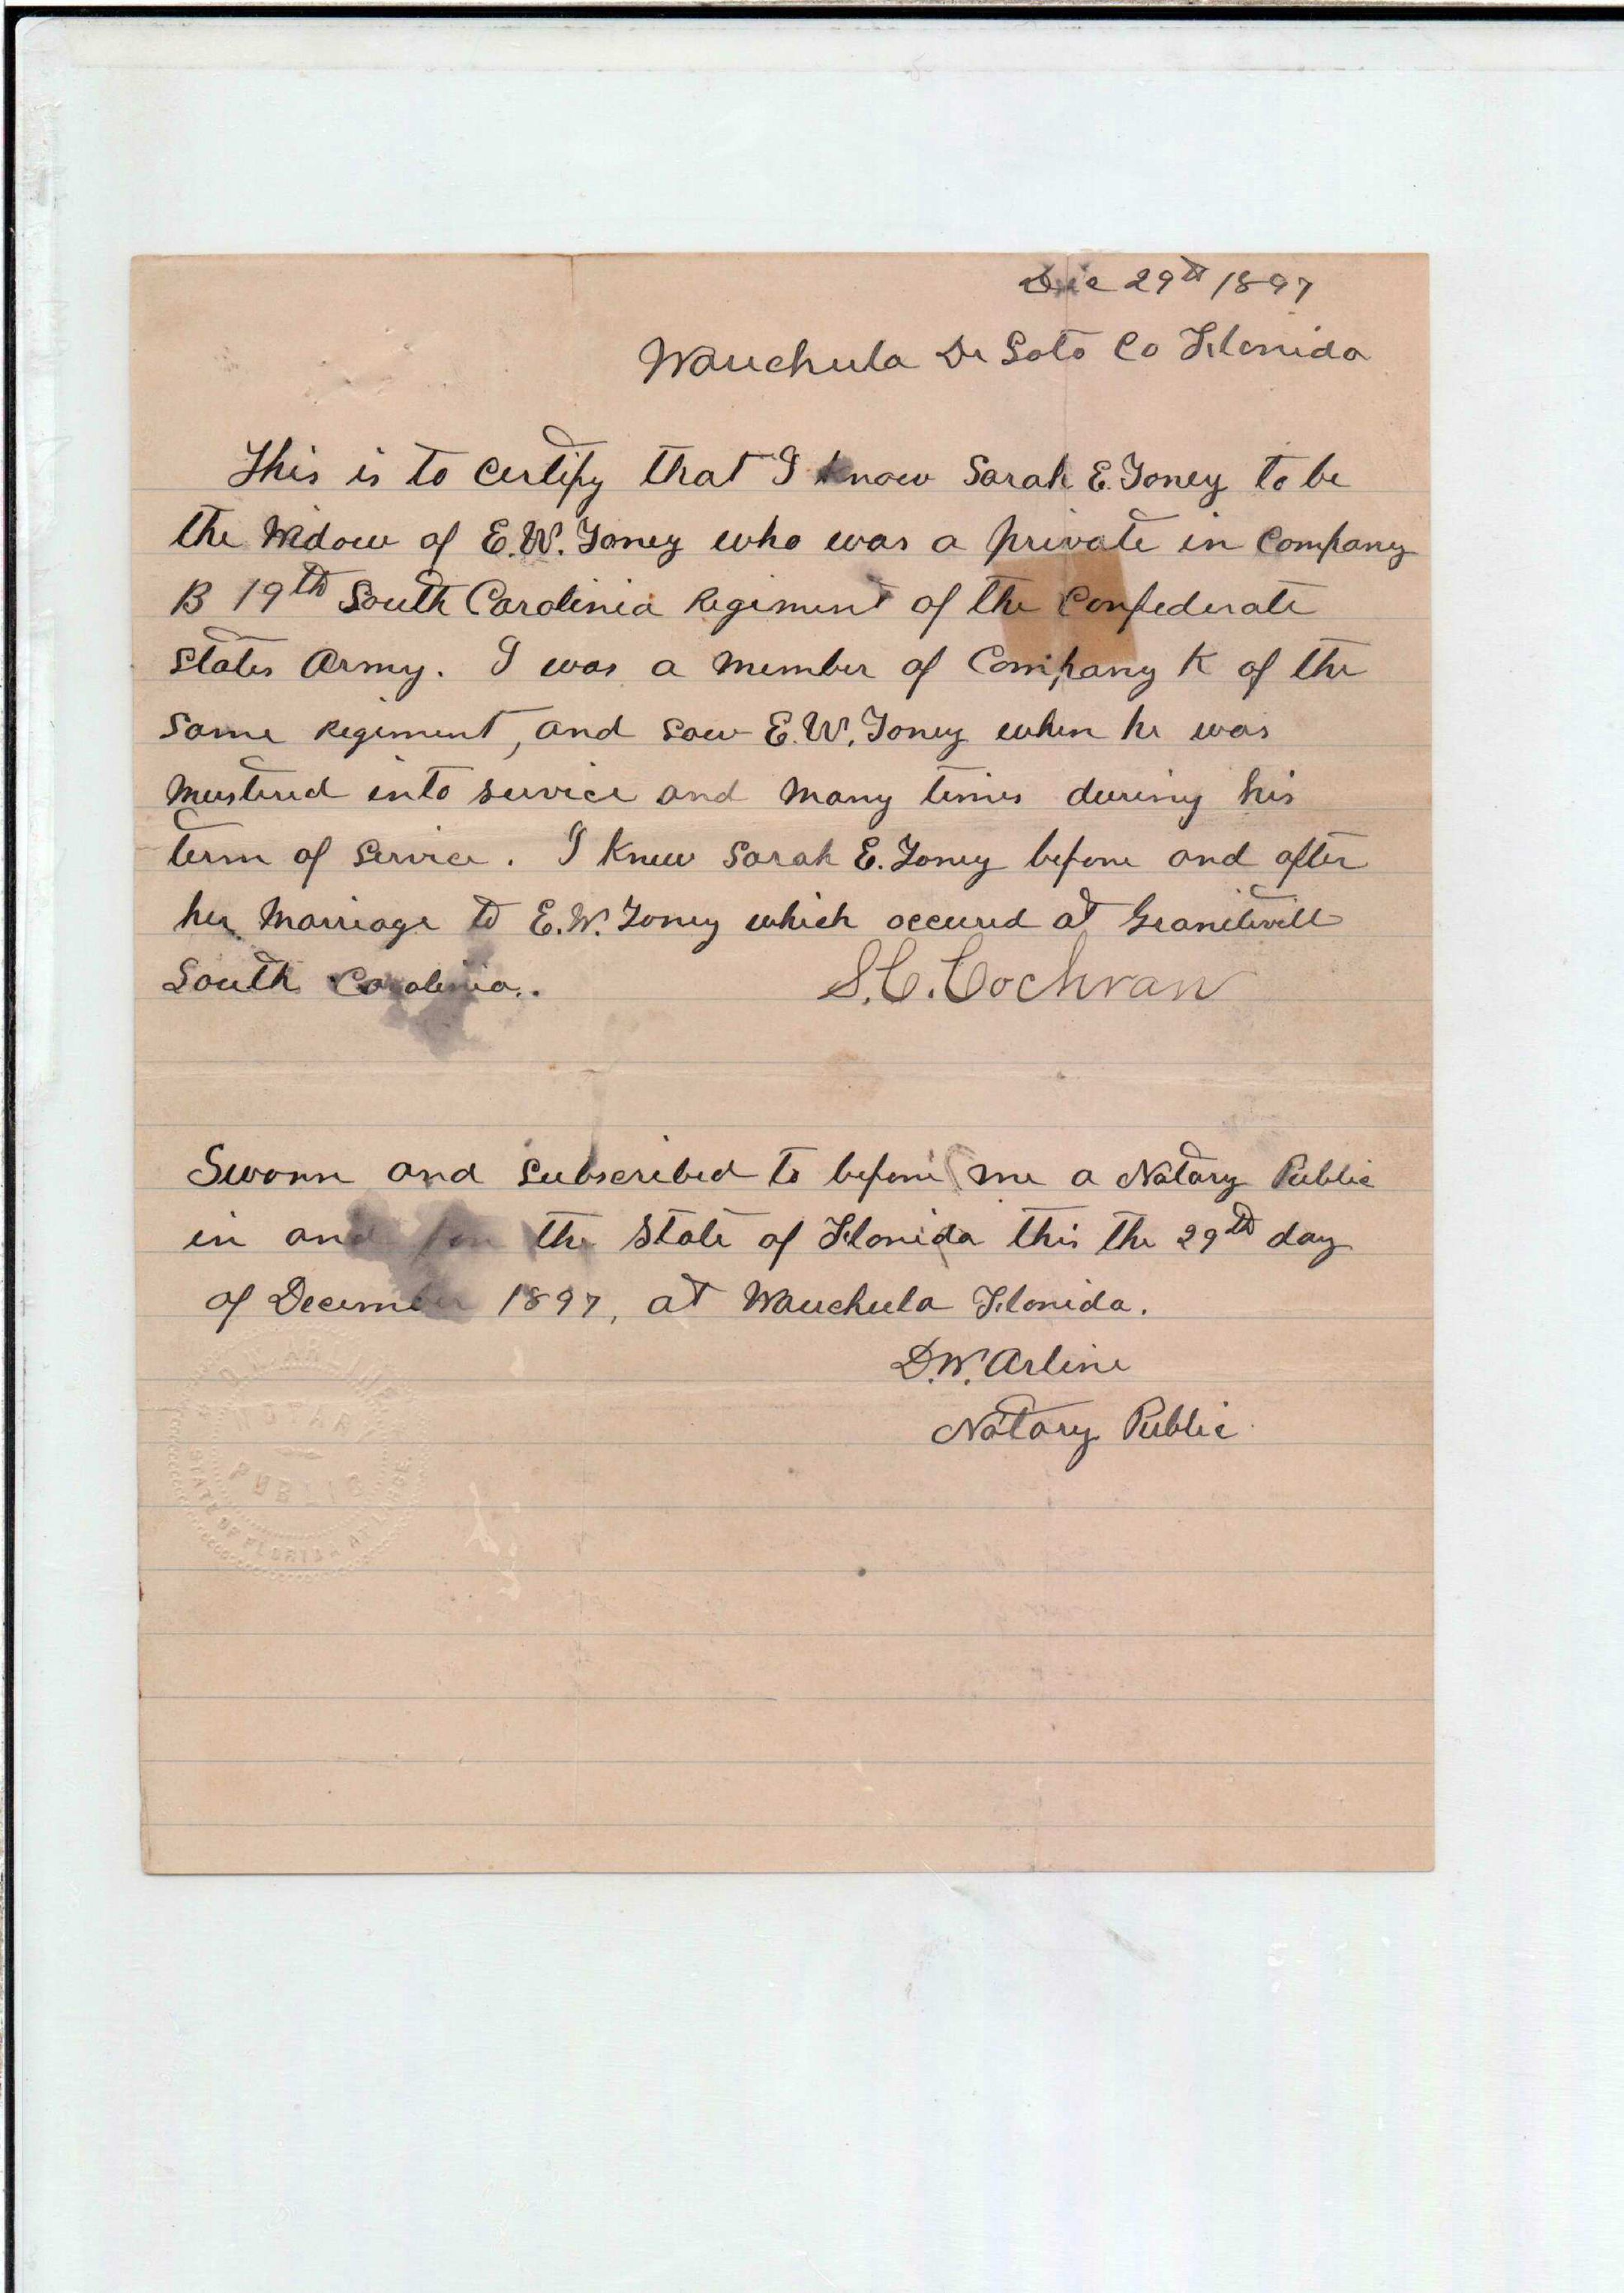 Dec 29th 1897
Wauchula De Soto Co Florida
This is to certify that I know Sarah E. Toney to be
the Widow of E.W. Toney who was a private in Company
B 19th South Carolinia Regiment of the Confederate
States Army. I was a member of Company K of the
same Regiment, and saw E.W. Toney when he was
mustered into service and many times during his
term of service. I knew Sarah E. Toney before and after
her marriage to E.W. Toney which occured at Granitevill
South Carolinia.
S.C. Cochran
Sworn and subscribed to before me a Notary Public
in and for the State of Florida this the 29th day
of December 1897, at Wauchula Florida.
D.W. Arline
Notary Public
NOTARY
PUBLIC
STATE OF FLORIDA AT LARGE